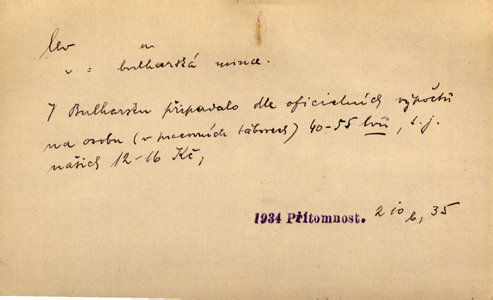 lev m
v = bulharská mince.
V Bulharsku připadalo dle oficielních výpočtů
na osobu (v pracovních táborech) 40-55 lvů, t.j.
našich 12-16 Kč,
1934 Přítomnost. 210 b, 35